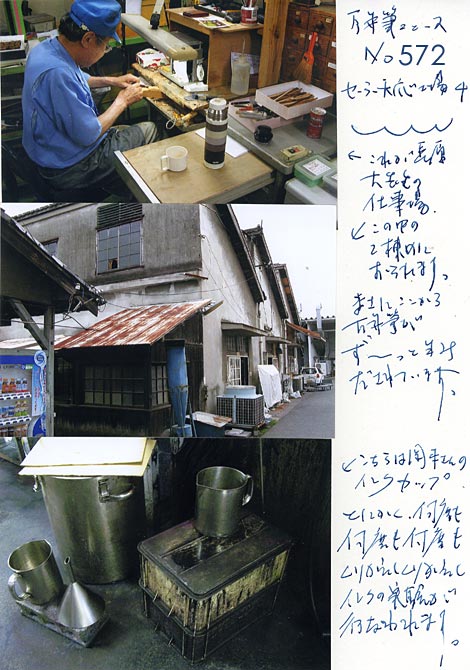 万年筆ニュース
No 572
セーラー天応工場 4
← これが長原
仕事場。
← この中の
2棟目に
おられます。
まさにここから
万年筆が
ず〜っと生み
だされています。
← こちらは さんの
インクカップ。
とにかく、何度も
何度も何度も
くりかえしくりかえし
インクの実験が
行なわれます。